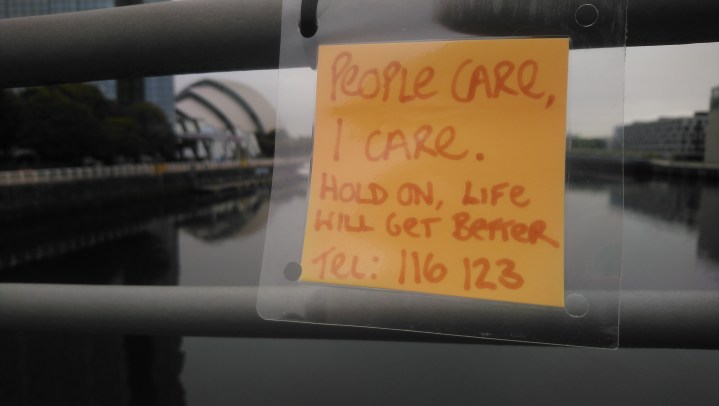 PEOPLE CARE,
I CARE.
HOLD ON, LIFE
WILL GET BETTER
TEL: 116 123